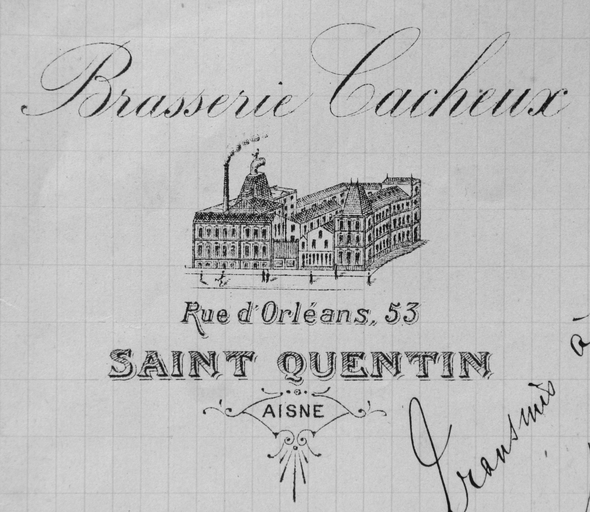 Brasserie Cacheux
Rue d'Orléans, 53
SAINT QUENTIN
AISNE
Transmis à